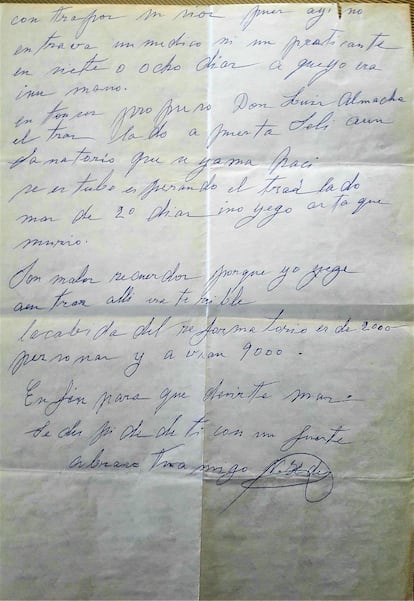 con trapor su nior puer ayi no
entrava un medico ni un praticante
en siete o ocho diar a queyo era
inu mano.
entonser propuso Don Luis Almacha
el tras lado a puerta Seli aun
Sanatorio que se yama haci
se estubo esperando el traslado
mar de 20 diar ino yego arta que
murio.
Son malor recuerdor porque yo yege
aentrar alli era terrible
lacabida del reformatorio er de 2000
personar y avian 9000.
En fin para que decirte mar.
Se des pide de ti con un fuerte
abrazo tu amigo